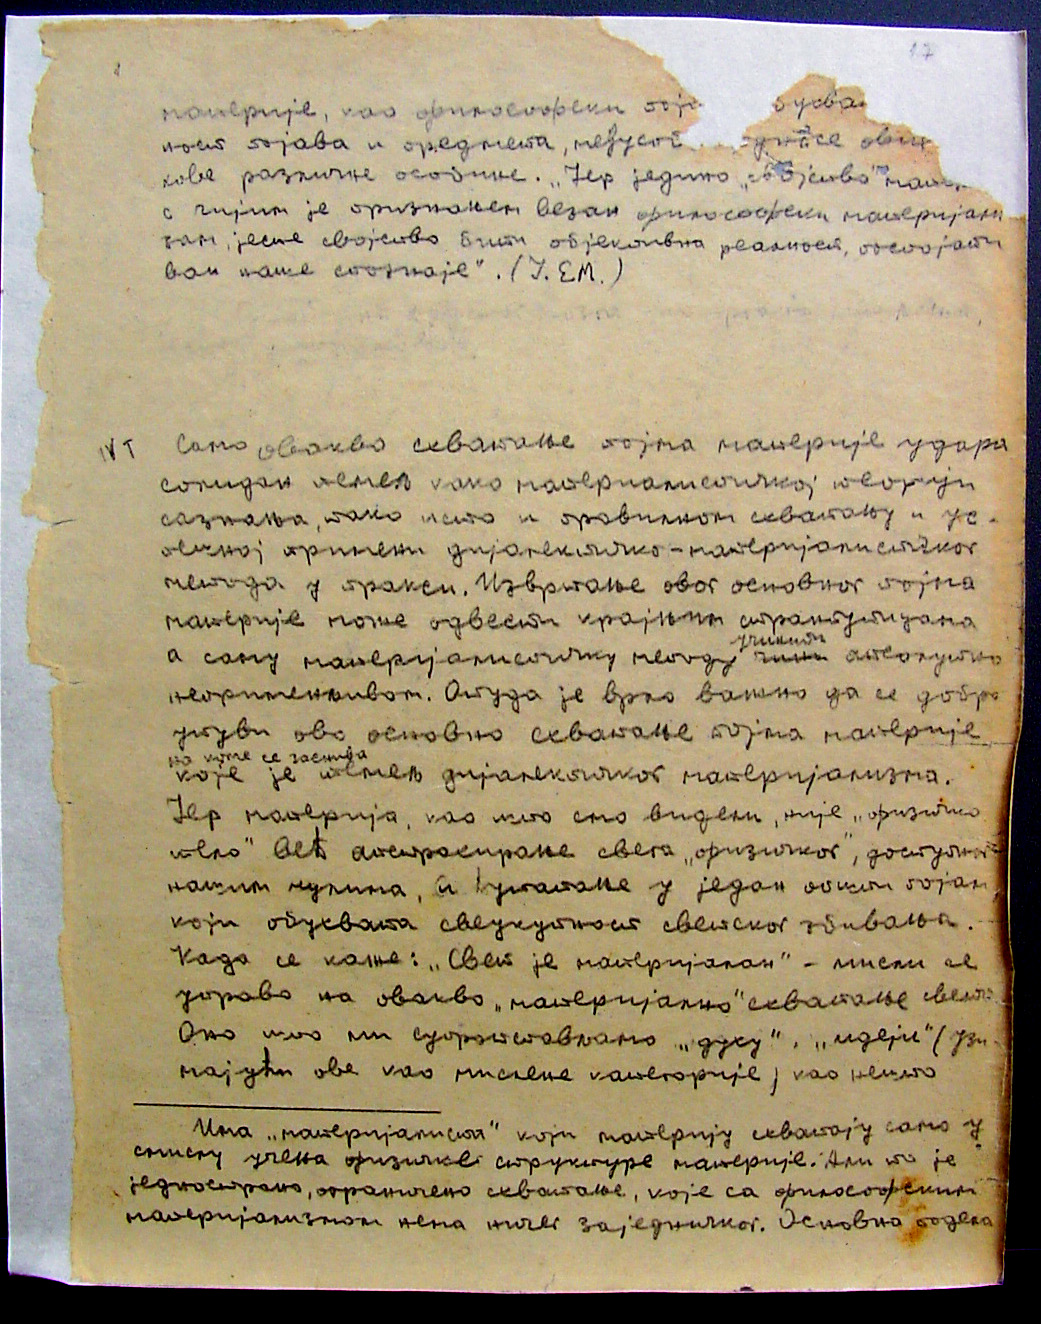 17
материје, као филозофски поја бухва
ност појава и предмета, не
кове различне особине. „Јер једино „својство" мате
с чијим је признањем везан филозофски материјали
зам, јесте својство бити објективна реалност, постојати
ван наше спознаје". (I. ЕМ.)
Само овакво схватање појма материје удара
солидан темељ како материалистичкој теорији
сазнања, тако исто и правилном схватању и ус-
пешној примени дијалектичко-материјалистичког
метода у пракси. Извртање овог основног појма
материје може одвести крајњим странпутицама
учинити
а саму материјалистичку методу чини апсолутно
неприменљивом. Отуда је врло важно да се добро
утуви ово основно схватање појма материје
на коме се заснива
које је темељ дијалектичког материјализма.
Јер материја, као што смо видели, није „физичко
тело" већ апстраховање свега „физичког", доступног
нашим чулима, и у један општи појам,
који обухвата свеукупност светског збивања.
Када се каже: „Свет је материјалан" – мисли се
управо на овакво „материјално" схватање света.
Оно што ми супротстављамо „духу", „идеји" (узи-
мајући обе као мислене категорије) као нешто
Има „материјалиста" који материју схватају само у
смислу учења физичке структуре материје. Али то је
једнострано, ограничено схватање, које са филозофским
материјализмом нема ничег заједничког. Основна подела